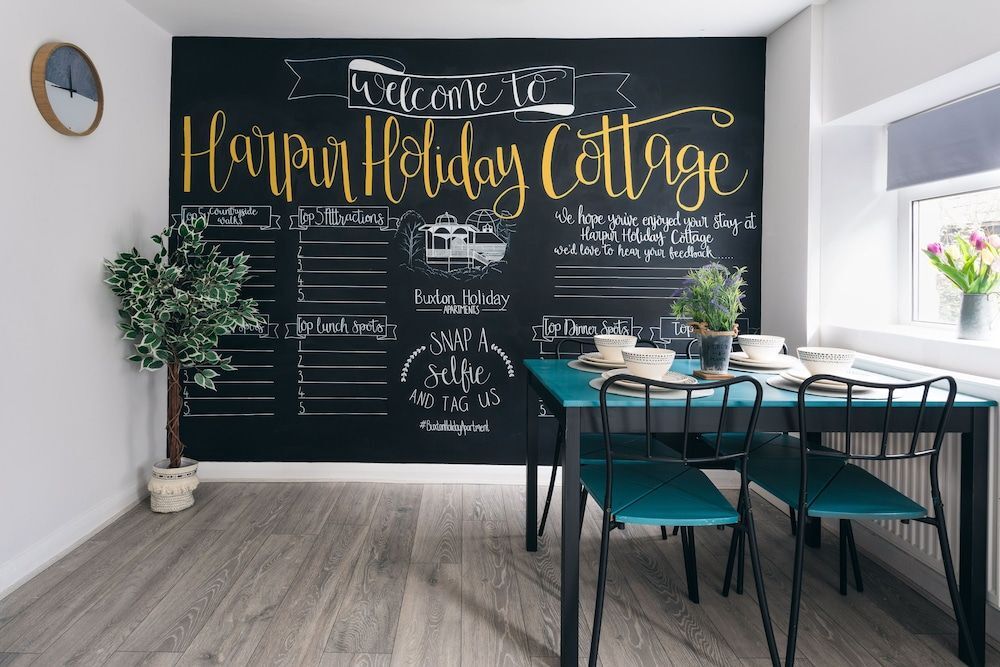 welcome to
Harpur Holiday Cottage
Top 5 Countryside
walks
1
2
3
4
5
Top 5 Attractions
1
2
3
4
5
We hope you've enjoyed your stay at
Harpur Holiday Cottage
we'd love to hear your feedback.....
Buxton Holiday
APARTMENTS
Top lunch spots
1
2
3
4
5
SNAP A
Selfie
AND TAG US
#BuxtonHolidayApartment
Top Dinner Spots
Top